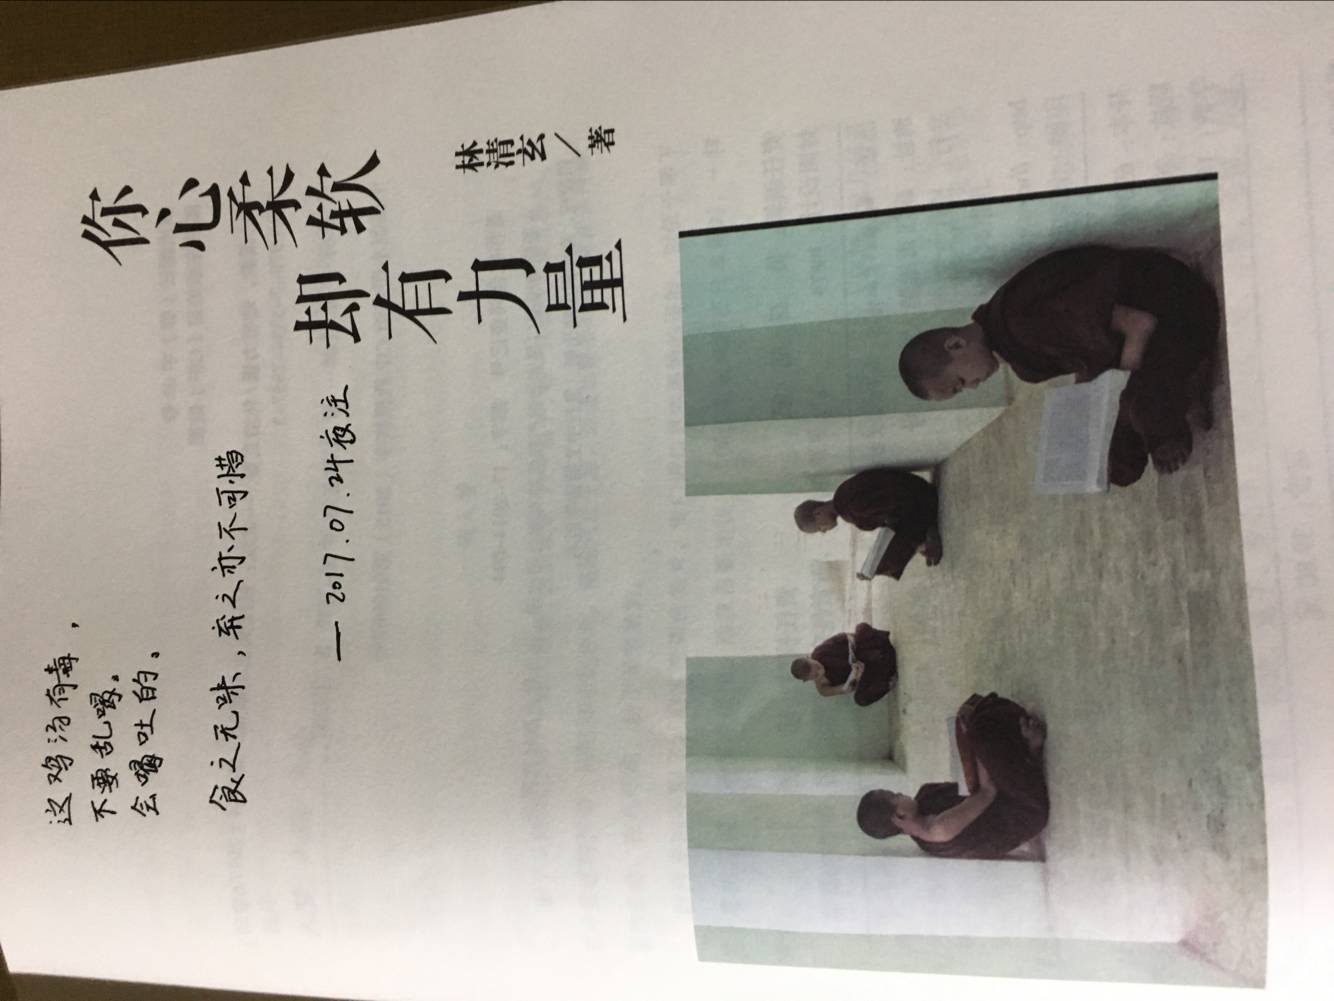 这鸡汤有毒，
不要乱喝。
会喝吐的。
食之无味，弃之亦不可惜
— 2017.07.24夜注
你心柔软
却有力量
林清玄／著